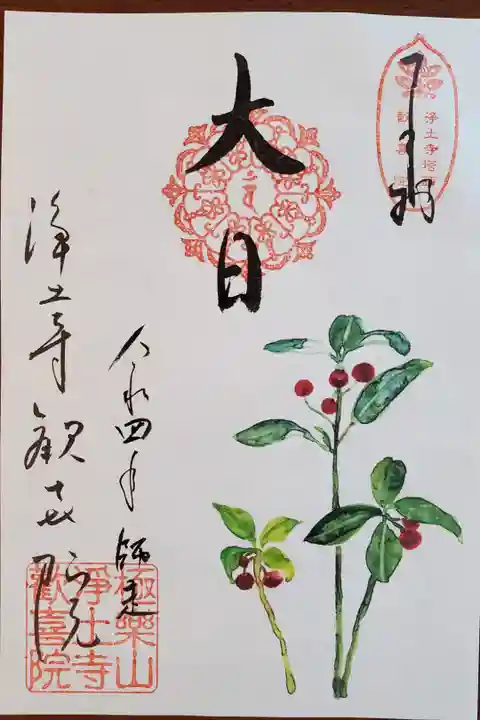 奉拝
浄土寺塔頭
歓喜院
大日
令和四年 師走
浄土寺 観喜院
極樂山
淨土寺
歡喜院